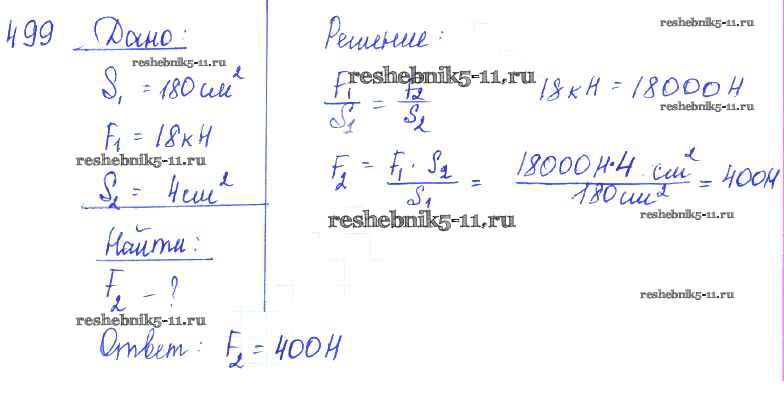 499 Дано:
reshebnik5-11.ru
S₁ = 180 см²
F₁ = 18 кН
reshebnik5-11.ru
S₂ = 4 см²
Найти:
F₂ - ?
reshebnik5-11.ru
Решение:
reshebnik5-11.ru
reshebnik5-11.ru
F₁/S₁ = F₂/S₂ 18 кН = 18000 Н
reshebnik5-11.ru
F₂ = F₁ · S₂/S₁ = 18000 Н · 4 см²/180 см² = 400 Н
reshebnik5-11.ru
reshebnik5-11.ru
reshebnik5-11.ru
Ответ: F₂ = 400 Н